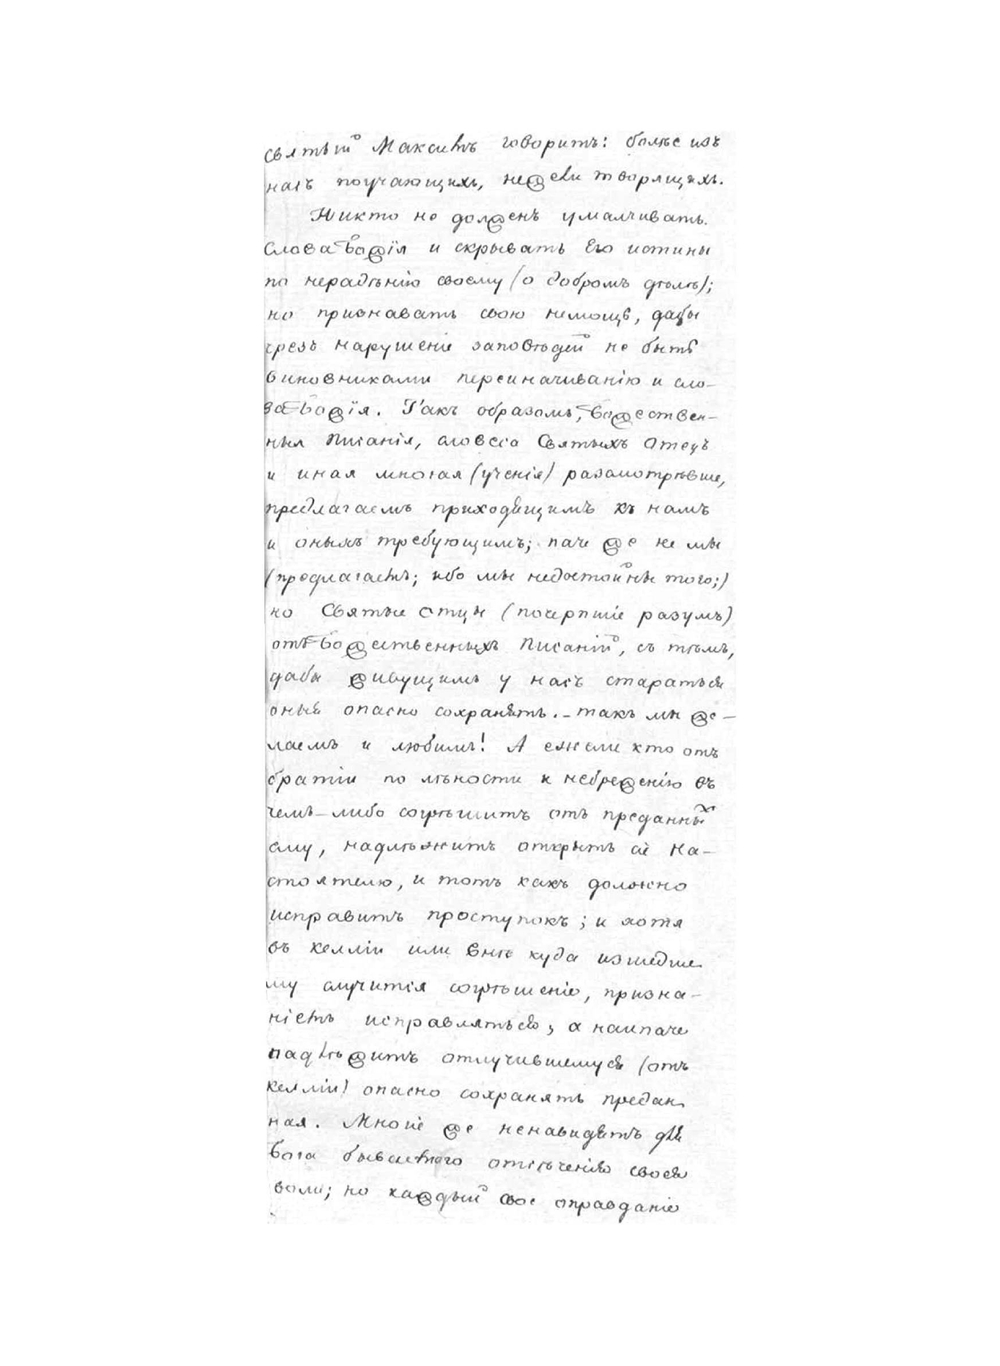 святый Максимъ говоритъ:болѣе изъ
насъ поучающихъ, нежели творящихъ.
Никто не долженъ умалчивать
слова Божія и скрывать Его истины
по нерадѣнію своему (о добромъ дѣлѣ);
но признавать свою немощь, дабы
чрезъ нарушеніе заповѣдей не быть
виновниками переиначиванію и сло-
ва Божія. Такъ образомъ, Божествен-
ныя Писанія, словеса Святыхъ Отецъ
и иная многая (ученія) разсмотрѣвше,
предлагаемъ приходящимъ къ намъ
и онымъ требующимъ; паче же не мы
(предлагаемъ; ибо мы недостойны того;)
но Святые отцы (почерпшіе разумъ)
отъ Божественныхъ Писаній, съ тѣмъ,
дабы живущимъ у насъ стараться
оныя опасно сохранять. – такъ мы же-
лаемъ и любимъ! А ежели кто отъ
братіи по лѣности и небреженію въ
чемъ-либо согрѣшитъ отъ преданныхъ
ему, надлежитъ открыть сіе На-
стоятелю, и тотъ какъ должно
исправитъ проступокъ; и хотя
въ келліи или внѣ куда изшедше
му случится согрѣшеніе, призна-
ніемъ исправляться, а наипаче
надлежитъ отлучившемуся (отъ
келліи) опасно сохранять предан
ная. Многіе же ненавидятъ для
Бога бываемого отсѣченія своея
воли; но каждый свое оправданіе